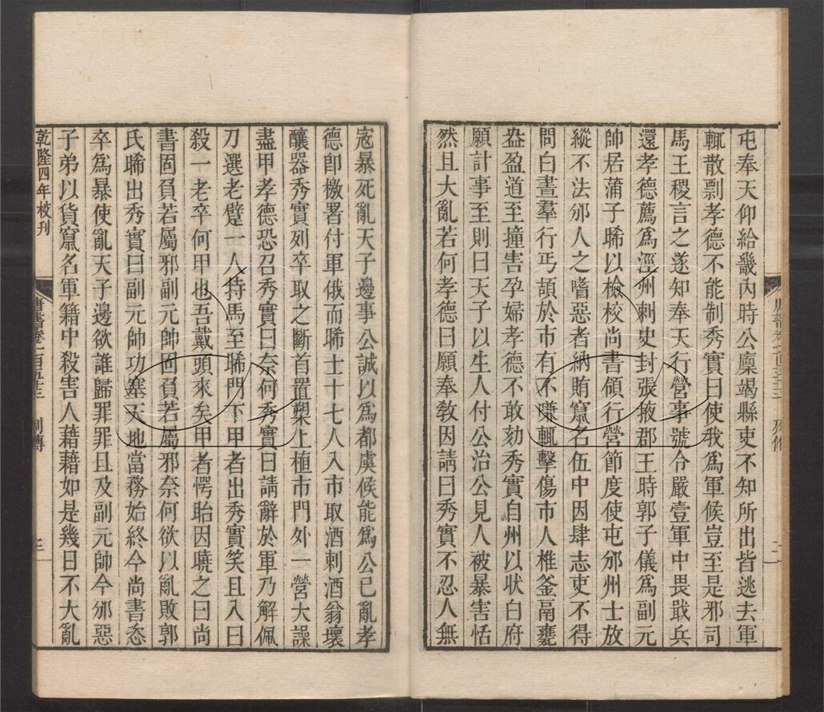 屯奉天仰給畿內時公廩竭縣吏不知所出皆逃去軍
輒散剽孝德不能制秀實曰使我爲軍候豈至是邪司
馬王稷言之遂知奉天行營事號令嚴壹軍中畏戢兵
還孝德薦爲涇州刺史封張掖郡王時郭子儀爲副元
帥居蒲子晞以檢校尚書領行營節度使屯邠州士放
縱不法邠人之嗜惡者納賄竄名伍中因肆志吏不得
問白晝羣行丐頡於市有不嗛輒擊傷市人椎釜鬲甕
盎盈道至撞害孕婦孝德不敢劾秀實自州以狀白府
願計事至則曰天子以生人付公治公見人被暴害恬
然且大亂若何孝德曰願奉敎因請曰秀實不忍人無
唐書卷一百五十三 列傳
寇暴死亂天子邊事公誠以爲都虞候能爲公已亂孝
德卽檄署付軍俄而晞士十七人入市取酒刺酒翁壞
釀器秀實列卒取之斷首置槊上植市門外一營大譟
盡甲孝德恐召秀實曰奈何秀實曰請辭於軍乃解佩
刀選老躄一人持馬至晞門下甲者出秀實笑且入曰
殺一老卒何甲也吾戴頭來矣甲者愕眙因曉之曰尚
書固負若屬邪副元帥固負若屬邪奈何欲以亂敗郭
氏晞出秀實曰副元帥功塞天地當務始終今尚書恣
卒爲暴使亂天子邊欲誰歸罪罪且及副元帥今邠惡
子弟以貨竄名軍籍中殺害人藉藉如是幾日不大亂
乾隆四年校刊
唐書卷一百五十三 列傳 三